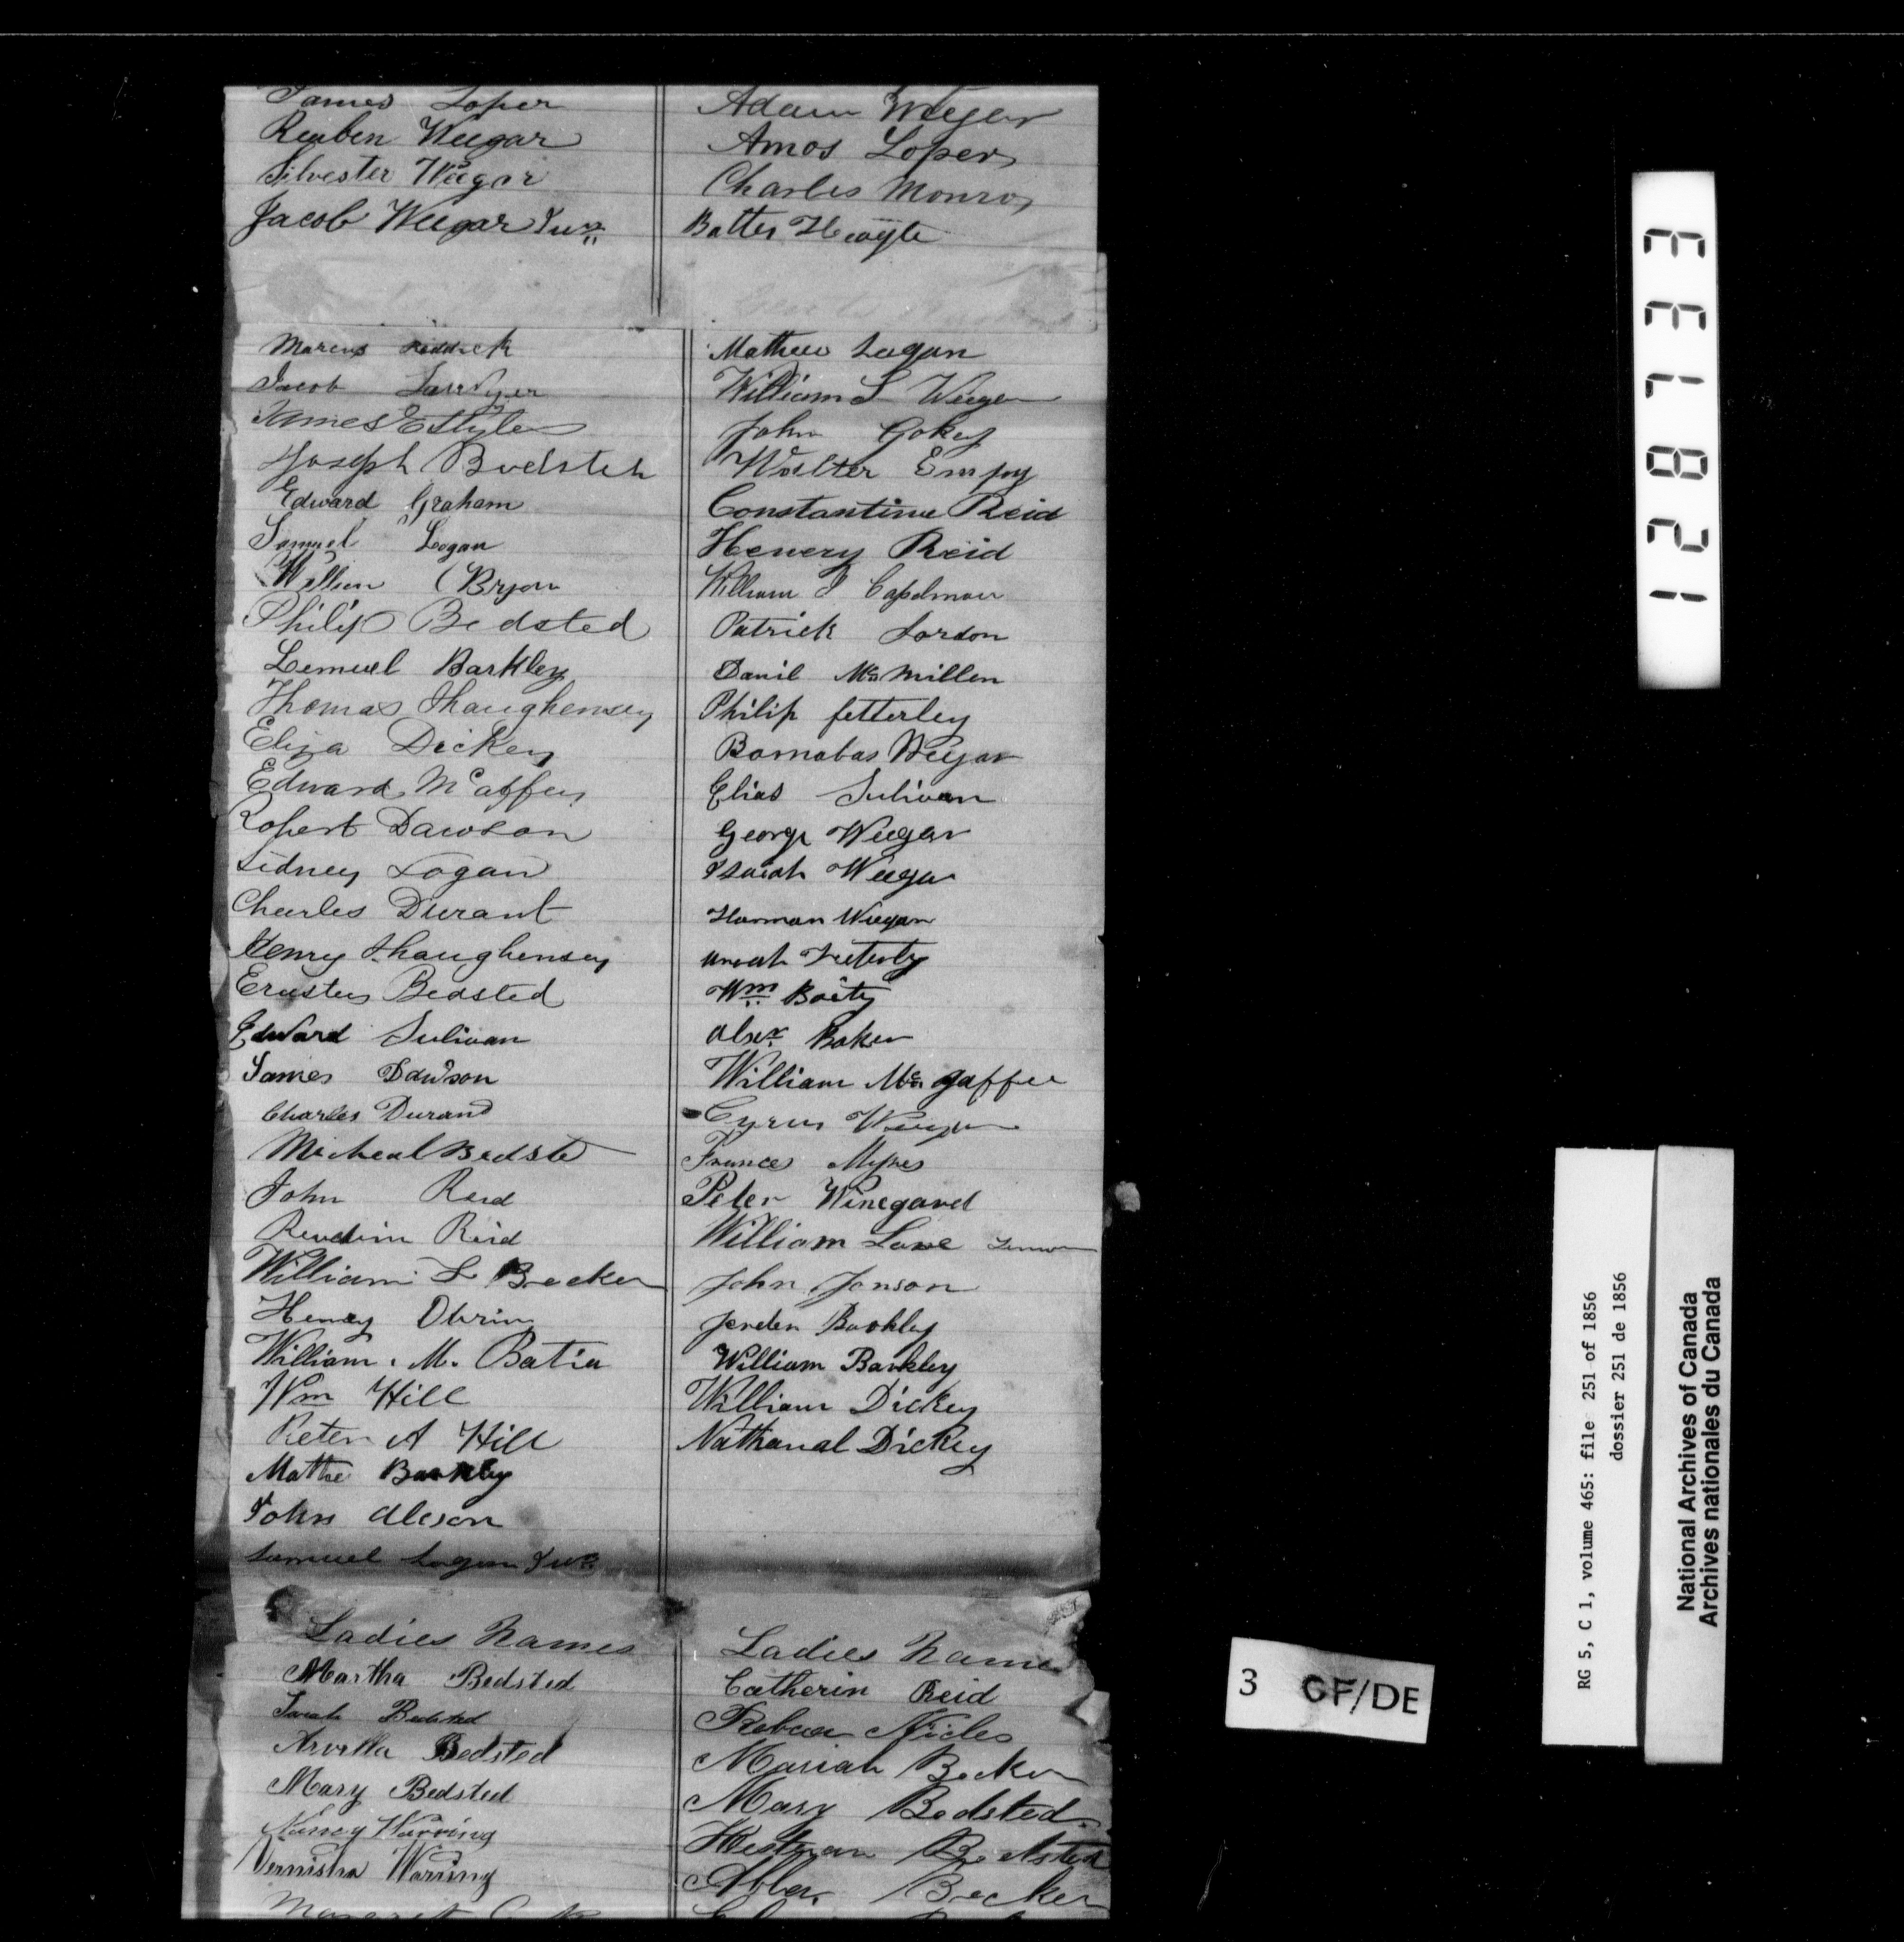 James Loper
Reuben Weegar
Silvester Weegar
Jacob Weegar Junr
Adam Weegar
Amos Loper
Charles Monro
Marcus Reddick
Jacob
James E Styles
Joseph Bedsted
Edward Graham
Samuel Logan
William Bryan
Philip Bedsted
Lemuel Barkley
Thomas Shaughensey
Eliza Dickey
Edward McCaffery
Robert Dawson
Sidney Logan
Charles Durant
Henry Shaughensey
Erastus Bedsted
Edward Sulivan
James Dawson
Charles Durand
Micheal Bedste
John Reid
Reid
William L Becker
Henry Obrin
William . M. Batia
Wm Hill
Peter A Hill
Mathe Barkley
John Alison
Samuel Logan Junr
Mathew Logan
William S Weegar
John Gokey
Walter Empy
Constantine Reid
Henery Reid
William J Casselman
Patrick Lordon
Danil McMillen
Philip fetterley
Barnabas Weegar
Elias Sulivan
George Weegar
Isaiah Weegar
Harman Weegar
Wm Baity
Alexr Baker
William Mc gaffee
Cyrus Weegar
Frances Myres
Peter Winegard
William Lane
John Jonson
Barkley
William Barkley
William Dickey
Nathanal Dickey
Ladies Names
Martha Bedsted
Sarah Bedsted
Arvilla Bedsted
Mary Bedsted
Nancy Warring
Vernisha Warring
Margaret
Ladies Names
Catherin Reid
Rebecca Nicles
Mariah Becker
Mary Bedsted
Bedsted
Abba Becker
128733
3 GF/DE
RG 5, C 1, volume 465: file 251 of 1856
dossier 251 de 1856
National Archives of Canada
Archives nationales du Canada